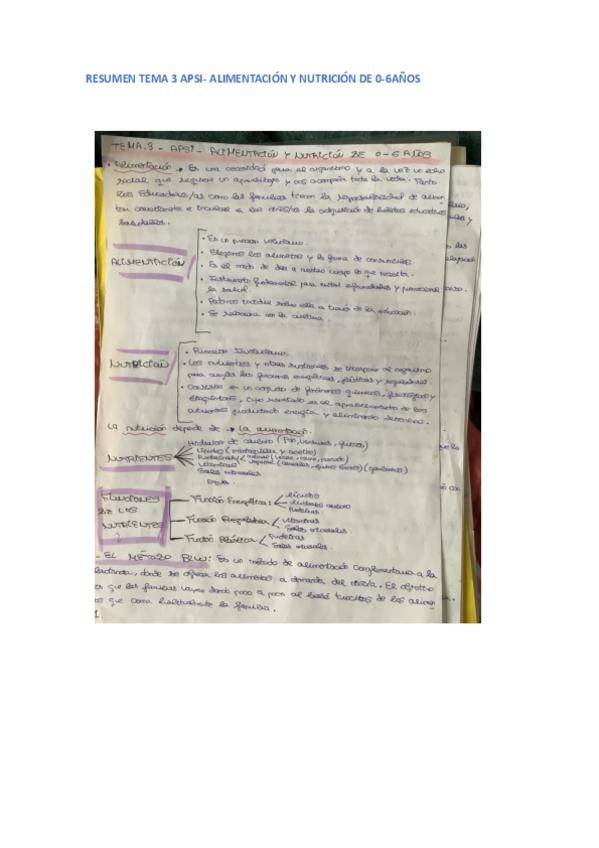 RESUMEN TEMA 3 APSI- ALIMENTACIÓN Y NUTRICIÓN DE 0-6AÑOS
TEMA.3 - APSI - ALIMENTACIÓN Y NUTRICIÓN DE 0-6 AÑOS
• Alimentación → Es una necesidad para el organismo y a la vez un acto
social que requiere un aprendizaje y nos acompaña toda la vida. Tanto
los Educadores/as como las familias tienen la responsabilidad de
e inculcar a los niños/as la adquisición de hábitos
saludables.
ALIMENTACIÓN
• Es un proceso voluntario.
• Elegimos los alimentos y la forma de consumirlos.
• Es el modo de dar a nuestro cuerpo lo que necesita.
• Instrumento fundamental para evitar enfermedades y promocionar
la salud.
• Podemos incidir sobre ella a través de la educación.
• Se relaciona con la cultura.
NUTRICIÓN
• Proceso Involuntario.
• Los nutrientes y otras sustancias se incorporan al organismo
para cumplir las funciones energéticas, plásticas y reguladoras.
• Consiste en un conjunto de fenómenos químicos, fisiológicos y
energéticos, cuyo resultado es el aprovechamiento de los
nutrientes produciendo energía y eliminando desechos.
La nutrición depende de → La alimentación.
NUTRIENTES
Hidratos de carbono (Pan, verduras, frutas)
Lípidos (mantequillas y aceites)
Proteínas
Vitaminas
Sales minerales
FUNCIONES
DE LOS
NUTRIENTES
Función Energética:
Lípidos
Hidratos carbono
Proteínas
Función Reguladora
Vitaminas
Sales minerales.
Función Plástica
Proteínas
Sales minerales.
- EL MÉTODO BLW: Es un método de alimentación complementaria a la
lactancia, donde se ofrecen los alimentos a demanda del niño/a. El objetivo
es que las familias vayan dando poco a poco al bebé trocitos de los
que coma habitualmente la familia.
1.